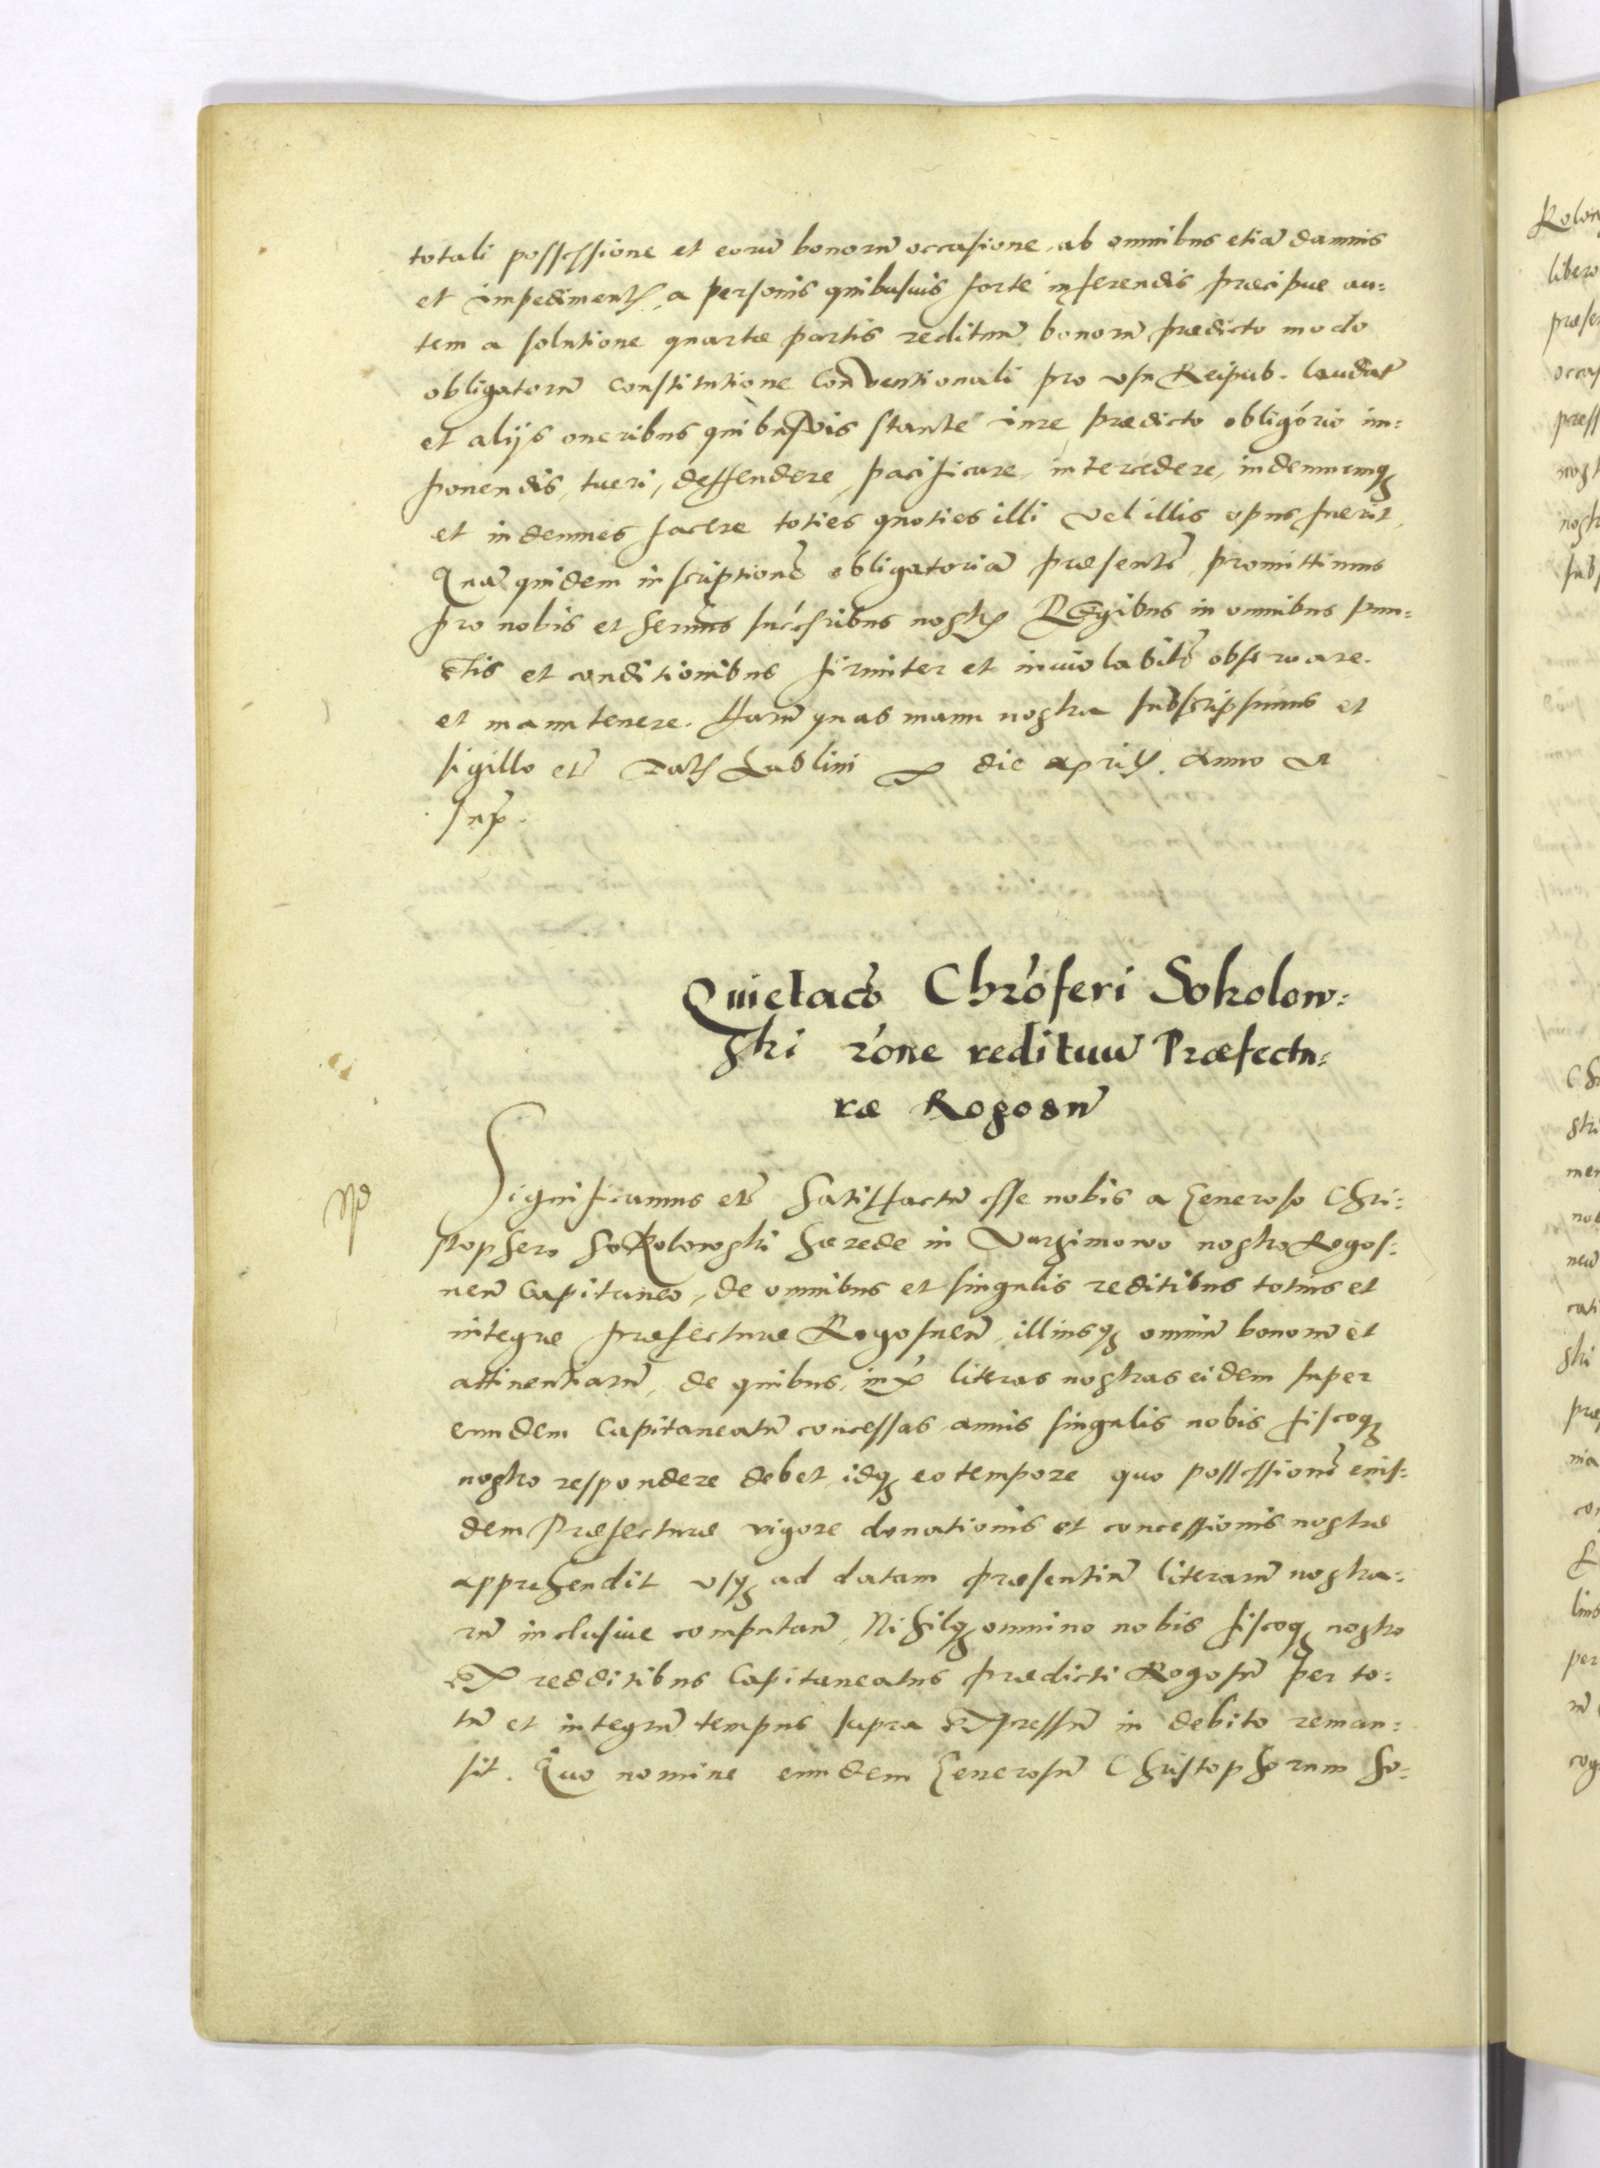 totali possessione et eorũ bonorũ occasione, ab omnibus etiã damnis
et impediments, a personis quibusuis forte inferendis, præcipue au:
tem a solutione quartæ partis redituũ bonorũ prædicto modo
obligatorũ constitutione Conventionali pro usu Reipub. laudat
et alijs oneribus quibusvis stante iure prædicto obligório im:
ponendis, tueri, deffendere, pacificare, intercedere, indemnemq;
et indemnes facere toties quoties illi vel illis opus fuerit,
Quã quidem inscriptionẽ obligatoriã præsentẽ, promittimus
pro nobis et Serm̃is succ̃ribus nostris Regibus in omnibus pun:
ctis et conditionibus firmiter et inviolabilr̃ observare.
et manutenere. Harũ quas manu nostra subscripsimus et
sigillo etc̃ Dat Lublini X die aprilis. Anno vt
supr̃.
Quietac̃o Chr̃oferi Sokolow:
ski r̃one redituum Præfectu:
ræ Rogosn̄
Significamus etc̃ Satisfactũ esse nobis a Generoso Chri:
stophero Sokolowski hærede in Varzimowo nostro Rogos:
nen̄ Capitaneo, de omnibus et singulis reditibus totius et
integræ præfecturæ Rogosnen̄, illiusq; omniũ bonorũ et
attinentiarũ, de quibus, iux̃ literas nostras eidem super
eundem Capitaneatũ concessas annis singulis nobis fiscoq;
nostro respondere debet, idq; eo tempore quo possessionẽ eius:
dem Præfecturæ vigore donationis et concessionis nostræ
apprehendit usq; ad datam præsentiũ literarũ nostra:
rũ inclusive computan̄, Nihilq; omnino nobis fiscoq; nostro
ex redditibus Capitaneatus prædicti Rogosn̄ per to:
tũ et integrũ tempus supra expressũ in debito reman:
sit. Quo nomine eundem Generosũ Christophorum So: